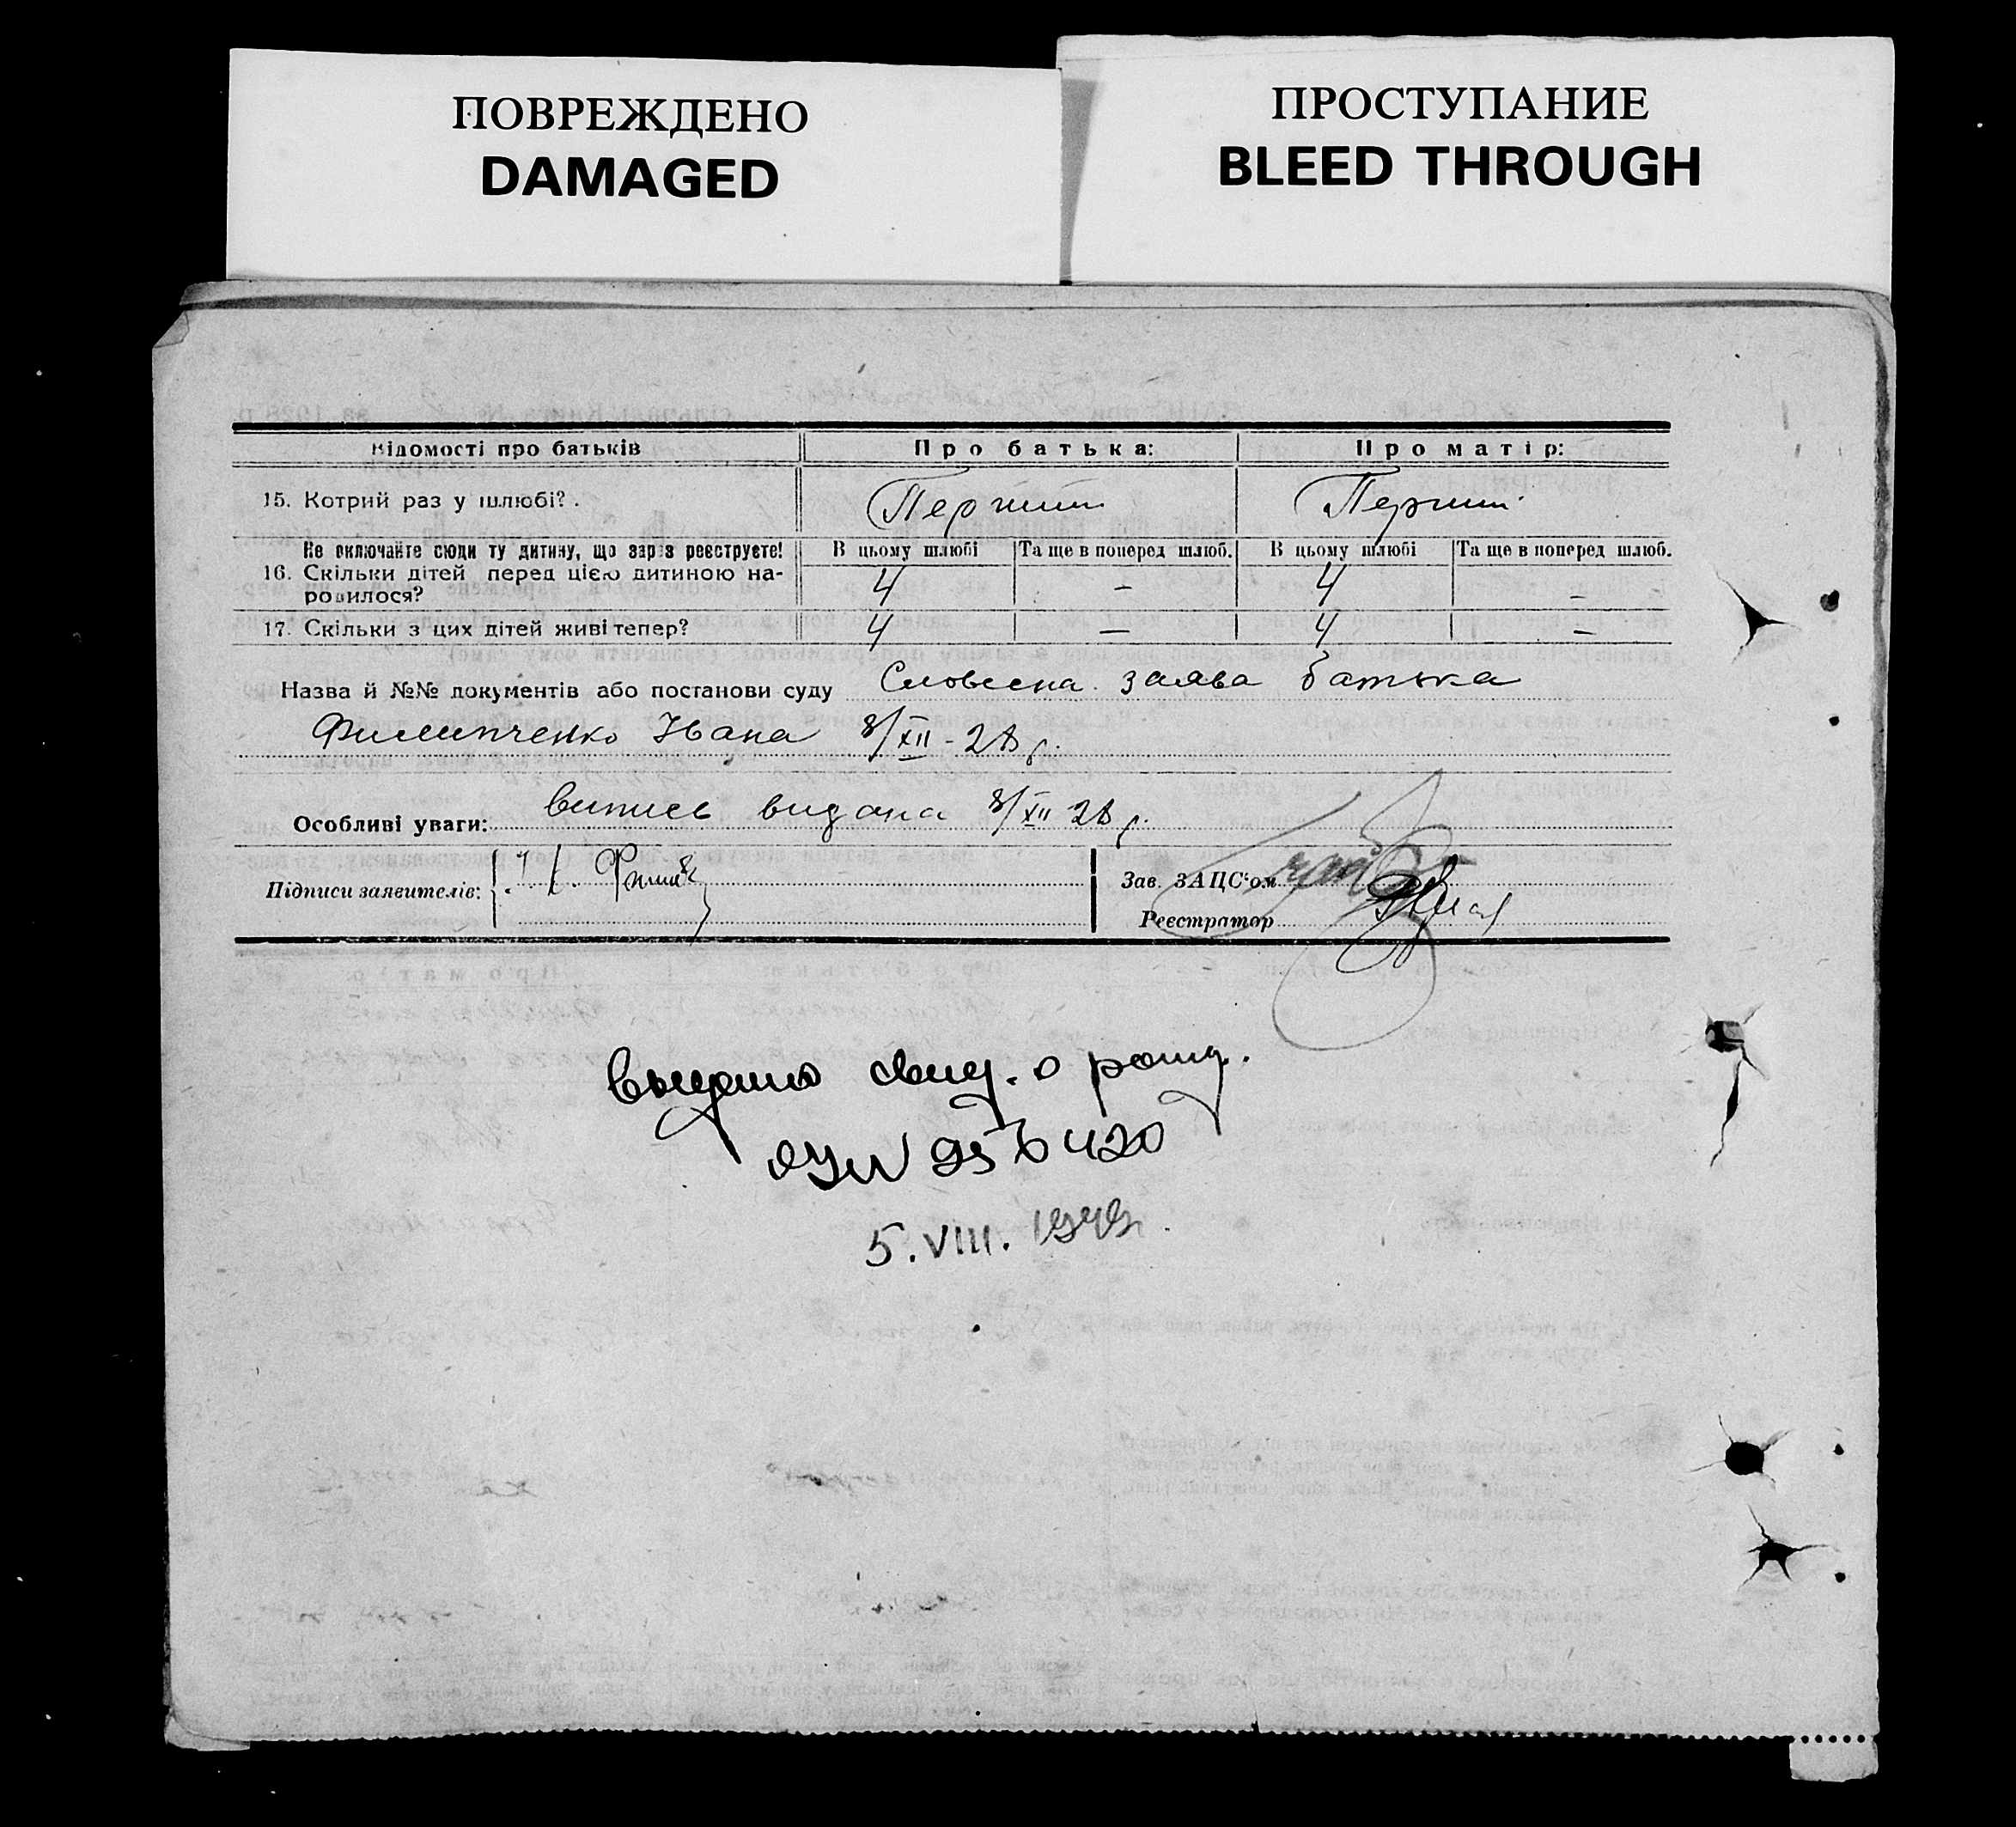 ПОВРЕЖДЕНО
DAMAGED
ПРОСТУПАНИЕ
BLEED THROUGH
Відомості про батьків Про батька: Про матір:
15. Котрий раз у шлюбі? Перший Перший
Не включайте сюди ту дитину, що зараз реєструєте! В цьому шлюбі Та ще в поперед шлюб. В цьому шлюбі Та ще в поперед шлюб.
16. Скільки дітей перед цією дитиною на-
родилося? 4 – 4 –
17. Скільки з цих дітей живі тепер? 4 — 4 –
Назва й №№ документів або постанови суду Словесна заява батька
Филипченко Івана 8/XII - 28 р.
Особливі уваги: випись видана 8/XII 28 р.
Підписи заявителів:
Зав. ЗАЦС'ом
Реєстратор
Выдано свид. о рожд.
5. VIII. 1949